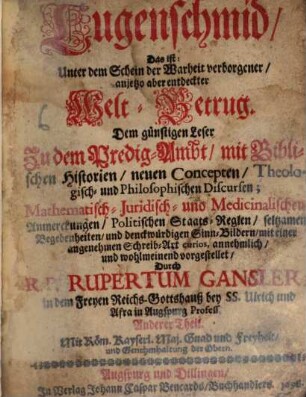 Lugenschmid /
Das ist:
Unter dem Schein der Warheit verborgener /
anjetzo aber entdeckter
Welt-Betrug.
Dem günstigen Leser
Zu dem Predig-Ambt / mit Bibli-
schen Historien / neuen Concepten / Theolo-
gisch- und Philosophischen Discursen ;
Mathematisch- Juridisch- und Medicinalischen
Anmerckungen / Politischen Staats-Reglen / seltzamen
Begebenheiten / und denckwürdigen Sinn-Bildern / mit einer
angenehmen Schreib-Art curios, annehmlich /
und wohlmeinend vorgestellet /
Durch
R. P. RUPERTUM GANSLER
in dem Freyen Reichs-Gottshauß bey SS. Ulrich und
Afra in Augspurg Profess.
Anderer Theil.
Mit Röm. Kayserl. Maj. Gnad und Freyheit /
und Genehmhaltung der Obern.
Augspurg und Dillingen /
In Verlag Johann Caspar Bencards / Buchhandlers.